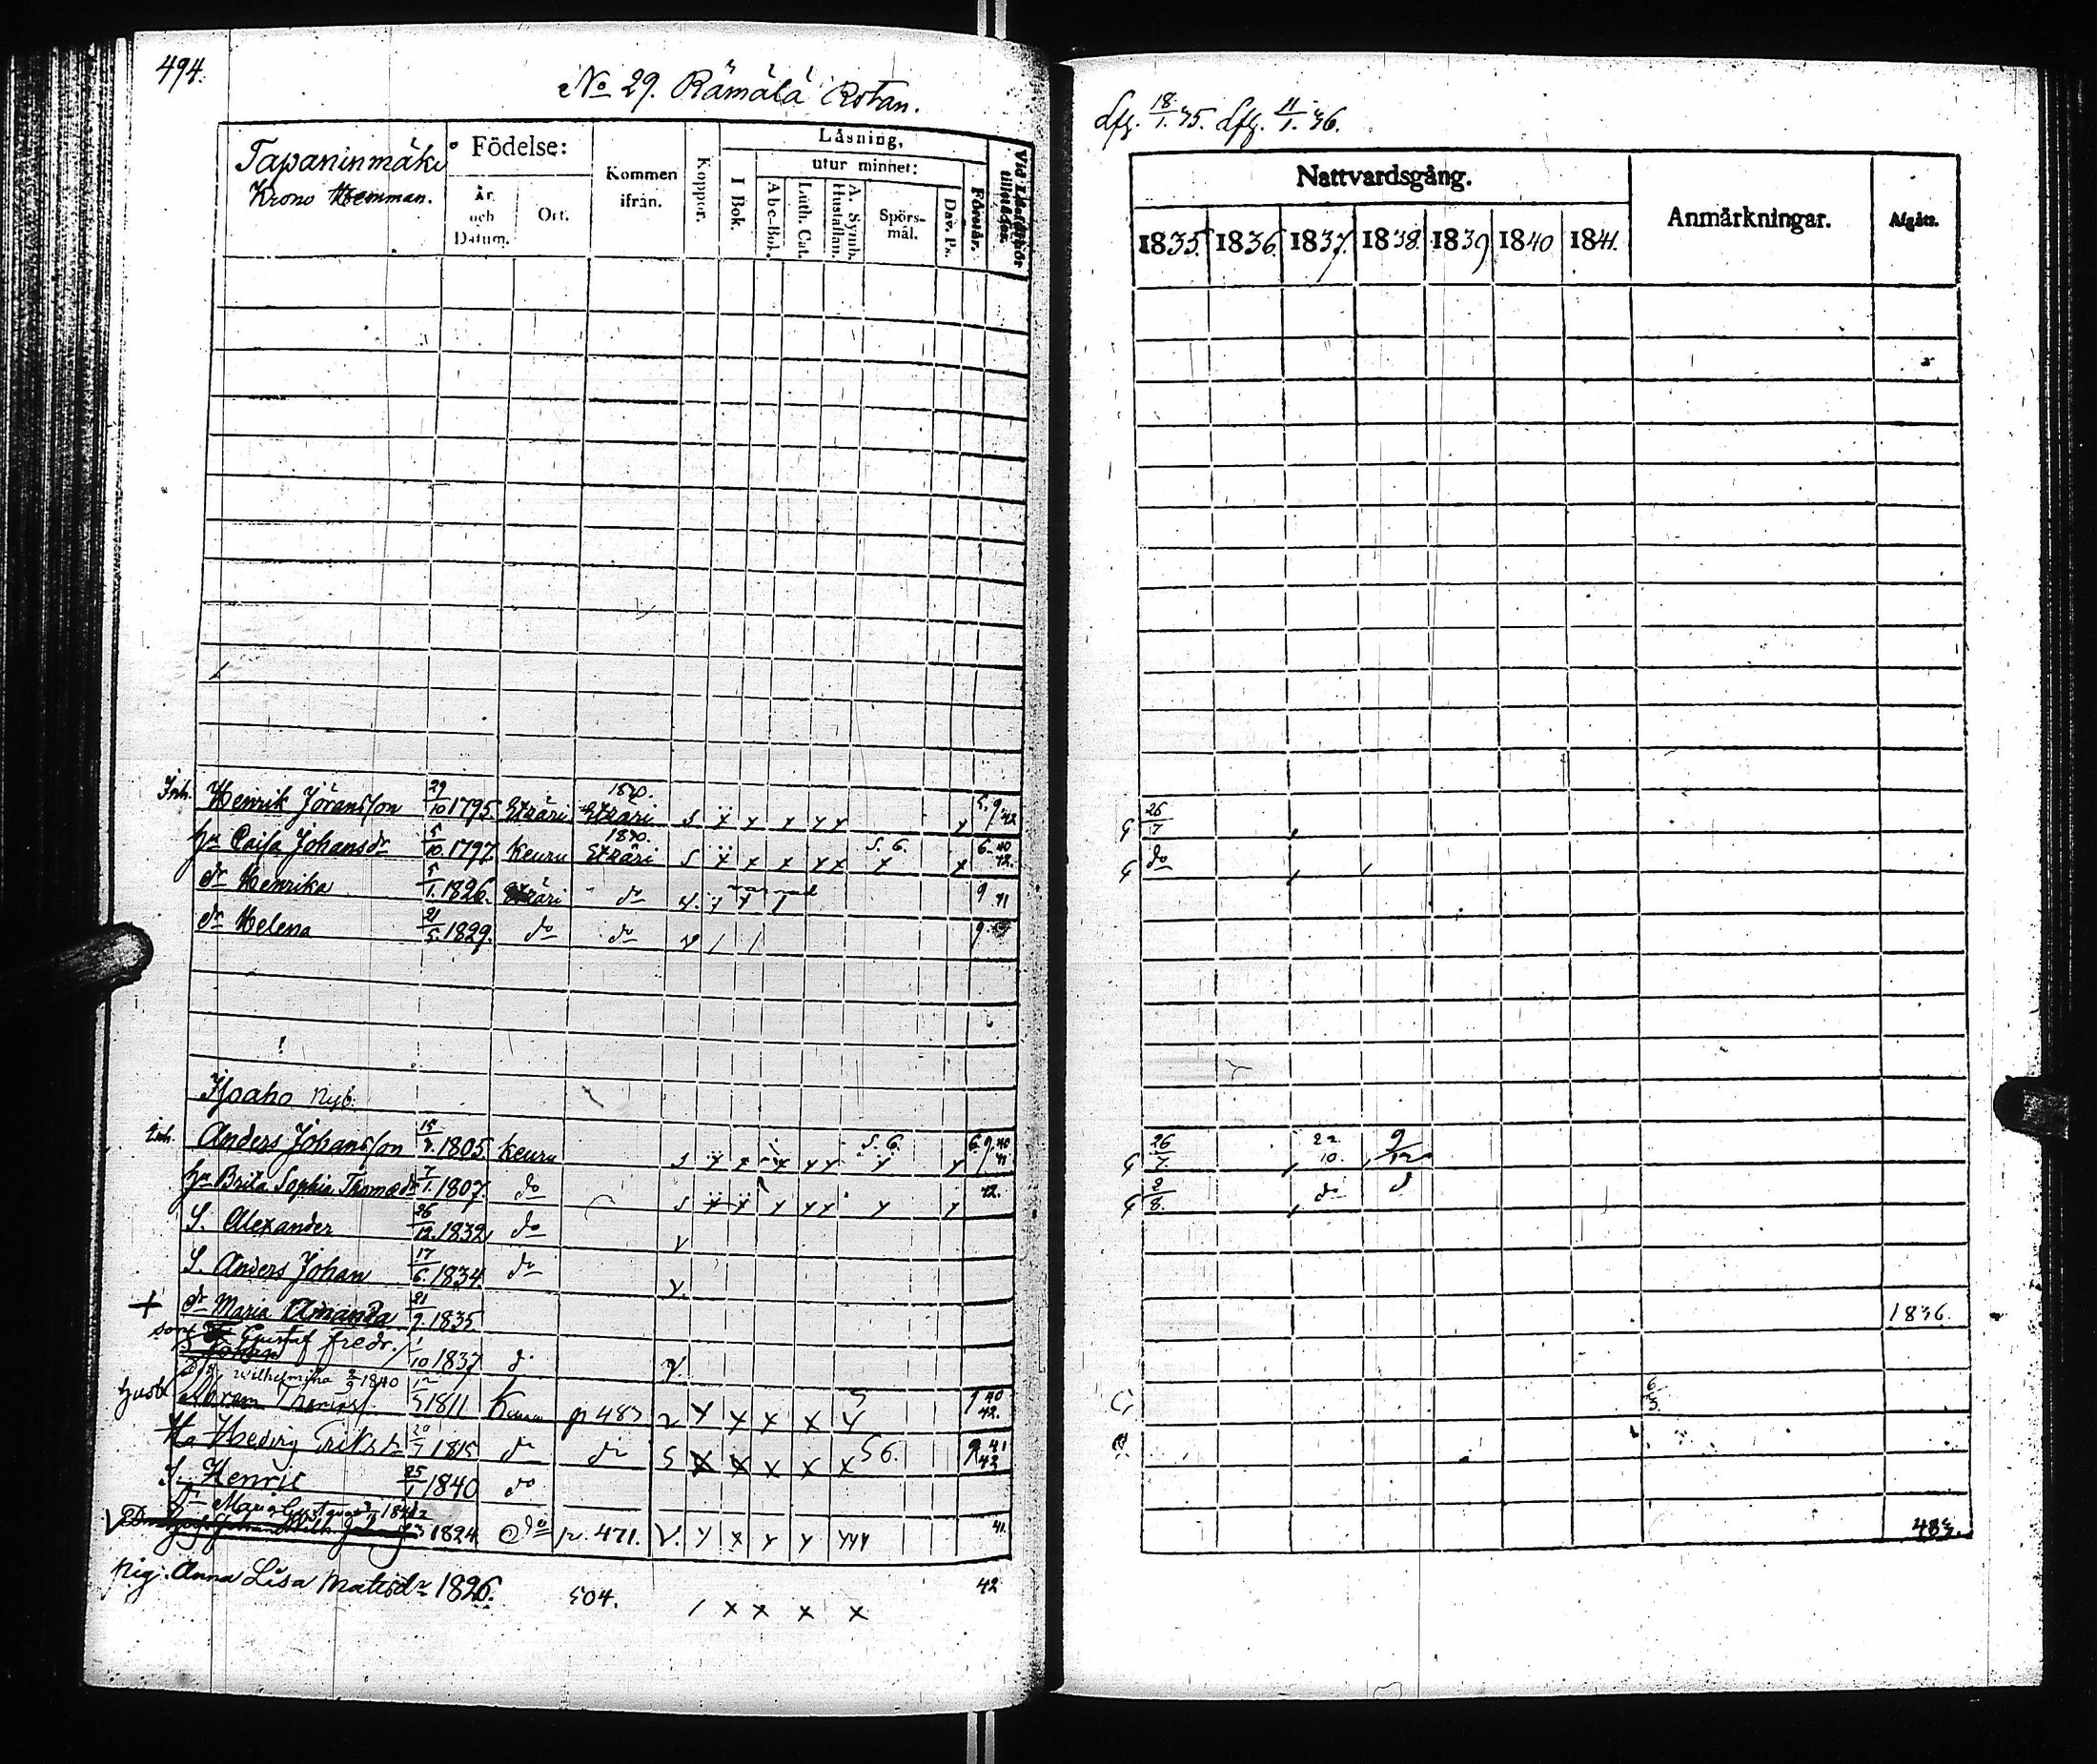 494.
No 29. Rämälä Rotan.
Tapaninmäki
Krono Hemman.
Födelse:
År och Datum.
Ort.
Kommen ifrån.
Koppor.
Läsning,
I Bok.
utur minnet:
Abc-Bok.
Luth. Cat.
A. Symb. Hustaflan.
Spörs-mål.
Dav. Ps.
Förstår.
Inh. Henrik Jöransson 29/10 1795. Etzäri 1840. Etzäri s x x x x x x 5. 9/42
hu Caisa Johansdr 5/10 1797. Keuru 1840. Etzäri s x x x x x 5. 6. x x 6. 40 42.
dr Henrika 5/1 1826. Etzäri do v. 9 41
dr Helena 21/5 1829. do do v / / 9.
Ilpaho Nyb.
Inh. Anders Johansson 15/ 1805 Keuru s x x x x x 5. 6. x x 6. 9. 40 41
hu Brita Sophia Thomædr 7/1 1807. do s x x x x x x x 42.
S. Alexander 26/12. 1832 do v
S. Anders Johan 17/6. 1834. do v.
+ dr Maria Amanda 21/9. 1835
son Gustaf fredr. 1/10 1837 d. v.
Wilhelmina 2/9 1840
Abram 12/5 1811 Keuru p 483 v x x x x 5 x 9 40 42.
Ha Hedvig Eriksdr 20/7 1815 do do S x x x x x 56. 9 41 42
S. Henric 25/ 1840 do
dr Maria
1824 do p. 471. V. x x x x x x x 41.
pig. Anna Lisa Matsdr 1826. 504. / x x x x 42
dfg. 18/1. 35. dfg. 11/1. 36.
Nattvardsgång.
Anmärkningar.
Afgått.
1835. 1836. 1837. 1838. 1839 1840 1841.
G 26/7
G do
G 26/7. 22/10. 9/12
G 2/8. do d
1836.
6/3.
483.